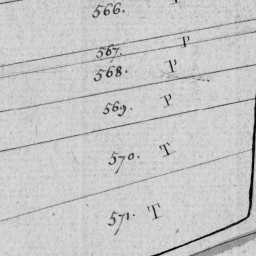 566.
567. P
568. P
569. P
570. T
571. T